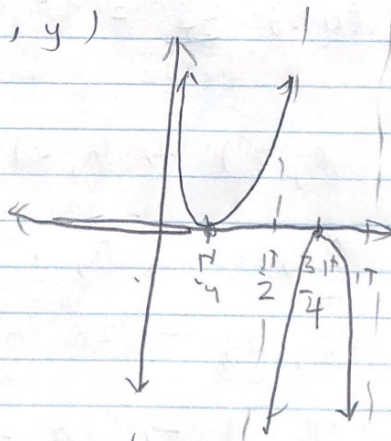 , y )
π/4 π/2 3π/4 π